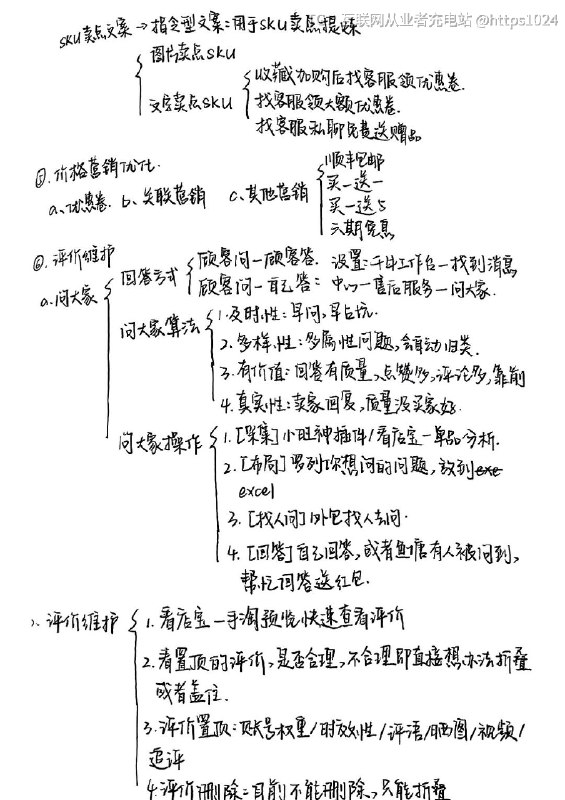 互联网从业者充电站 @https1024
SKU卖点文案→指令型文案:用于SKU卖点提炼
图片卖点SKU
文字卖点SKU
收藏加购后找客服领优惠卷.
找客服领大额优惠卷.
找客服私聊免费送赠品
①.价格营销优化.
a.优惠卷. b.关联营销 c.其他营销
顺丰包邮
买一送一
买一送5
六期免息
②.评价维护
a.问大家
回答方式
顾客问一顾客答. 设置:千牛工作台一找到消息
顾客问一自己答: 中心一售后服务一问大家.
问大家算法
1.及时性:早问,早占坑.
2.多样性:多属性问题,会自动归类.
3.有价值:回答有质量,点赞多,评论多,靠前
4.真实性:卖家回复,质量没买家好.
问大家操作
1.[采集]小旺神插件/看店宝一单品分析.
2.[布局]罗列你想问的问题,放到exe
excel
3.[找人问]外包找人去问.
4.[回答]自己回答,或者鱼塘有人被问到,
帮忙回答送红包.
评价维护
1.看店宝一手淘预览快速查看评价
2.看置顶的评价,是否合理,不合理即直接想办法折叠
或者盖住.
3.评价置顶:账号权重/时效性/评语/晒图/视频/
追评
4.评价删除:目前不能删除,只能折叠